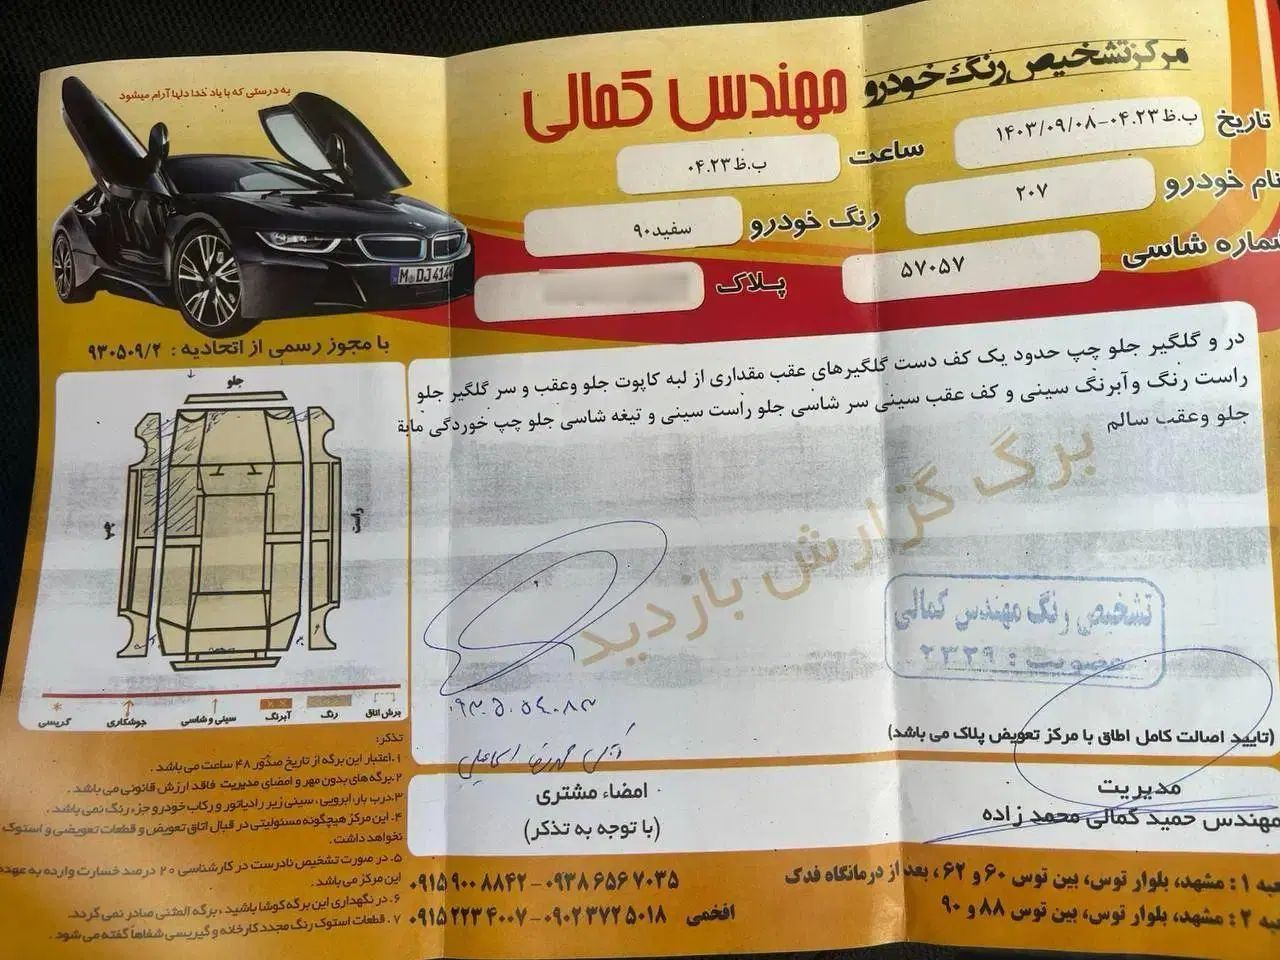 به درستی که با یاد خدا دلها آرام میشود
مرکز تشخیص رنگ خودرو
مهندس کمالی
تاریخ
ب.ظ ۰۴.۲۳-۱۴۰۳/۰۹/۰۸
ساعت
ب.ظ ۰۴.۲۳
نام خودرو
۲۰۷
رنگ خودرو
سفید۹۰
شماره شاسی
۵۷۰۵۷
پلاک
M DJ 414
با مجوز رسمی از اتحادیه : ۹۳۰۵۰۹/۲
در و گلگیر جلو چپ حدود یک کف دست گلگیرهای عقب مقداری از لبه کاپوت جلو وعقب و سر گلگیر جلو
راست رنگ وآبرنگ سینی و کف عقب سینی سر شاسی جلو راست سینی و تیغه شاسی جلو چپ خوردگی مابق
جلو وعقب سالم
برگ گزارش بازدید
جلو
چپ
راست
برش اتاق
رنگ
آبرنگ
سینی و شاسی
جوشکاری
گریسی
تشخیص رنگ مهندس کمالی
عضویت : ۲۳۲۹
(تایید اصالت کامل اطاق با مرکز تعویض پلاک می باشد)
مدیریت
مهندس حمید کمالی محمد زاده
امضاء مشتری
(با توجه به تذکر)
تذکر:
۱. اعتبار این برگه از تاریخ صدور ۴۸ ساعت می باشد .
۲. برگه های بدون مهر و امضای مدیریت فاقد ارزش قانونی می باشد .
۳. درب بار، ابرویی ، سینی زیر رادیاتور و رکاب خودرو جزء رنگ نمی باشد .
۴. این مرکز هیچگونه مسئولیتی در قبال اتاق تعویض و قطعات تعویضی و استوک
نخواهد داشت .
۵. در صورت تشخیص نادرست در کارشناسی ۲۰ درصد خسارت وارده به عهده
این مرکز می باشد .
۶. در نگهداری این برگه کوشا باشید ، برگه المثنی صادر نمی گردد.
۷. قطعات استوک رنگ مجدد کارخانه و گیریسی شفاهاً گفته می شود .
۰۹۱۵ ۹۰۰ ۸۸۴۲ - ۰۹۳۸ ۶۵۶ ۷۰۳۵
۰۹۱۵ ۲۲۳ ۴۰۰۷ - ۰۹۰۲ ۳۷۲ ۵۰۱۸ افخمی
۱ : مشهد، بلوار توس، بین توس ۶۰ و ۶۲ ، بعد از درمانگاه فدک
۲ : مشهد، بلوار توس، بین توس ۸۸ و ۹۰